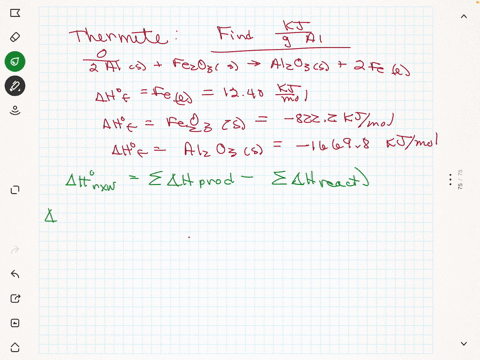 Thermite: Find KJ/g Al
0
2Al(s) + Fe2O3(s) → Al2O3(s) + 2Fe(l)
ΔH°f = Fe(l) = 12.40 KJ/mol
ΔH°f = Fe2O3(s) = -822.2 KJ/mol
ΔH°f = Al2O3(s) = -1669.8 KJ/mol
ΔH°rxn = ΣΔHprod - ΣΔHreact)
Δ
75 / 75